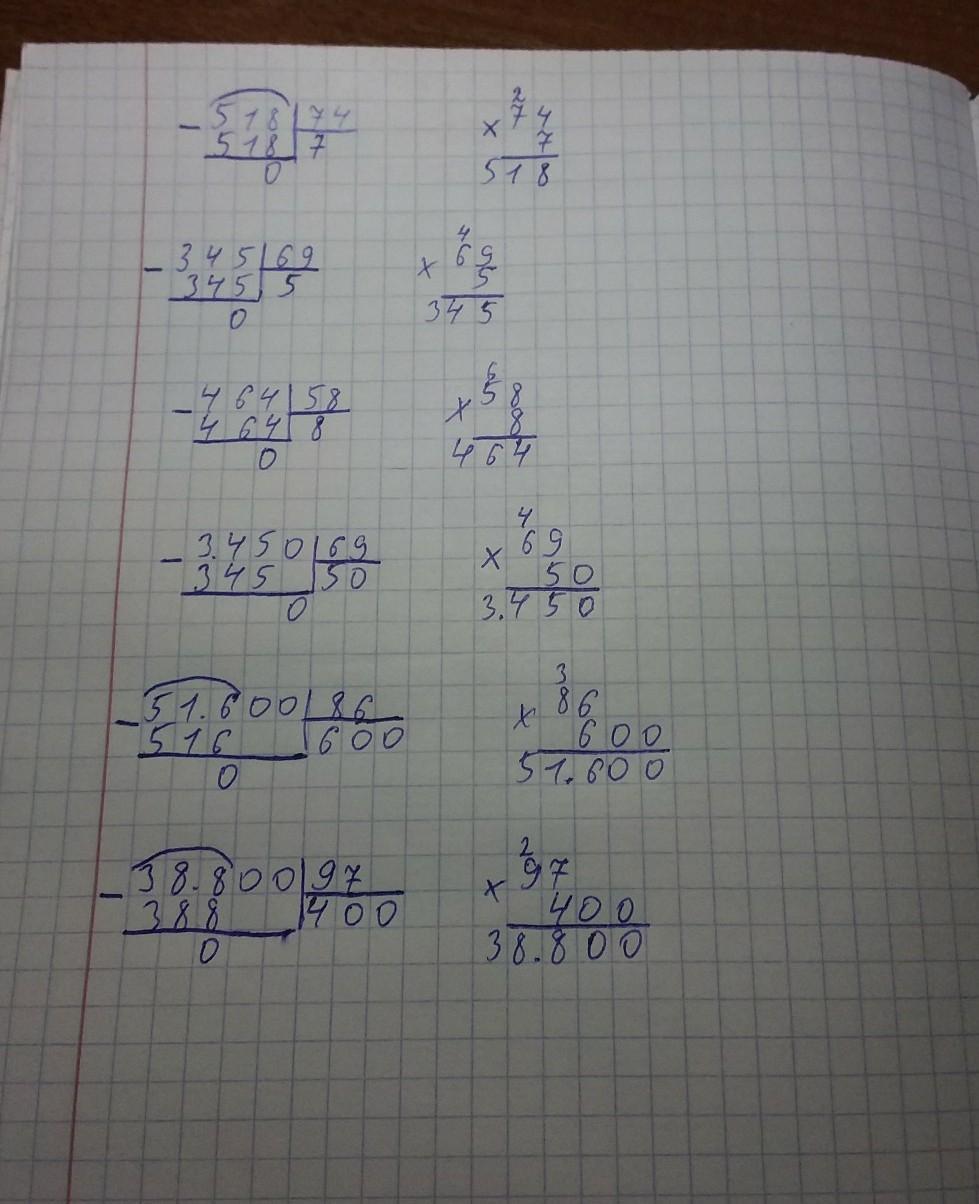 2
- 518 74 × 74
518 7 7
0 518
4
- 345 69 × 69
345 5 5
0 345
6
- 464 58 × 58
464 8 8
0 464
4
- 3.450 69 × 69
345 50 50
0 3.450
3
- 51.600 86 × 86
516 600 600
0 51.600
2
- 38.800 97 × 97
388 400 400
0 38.800